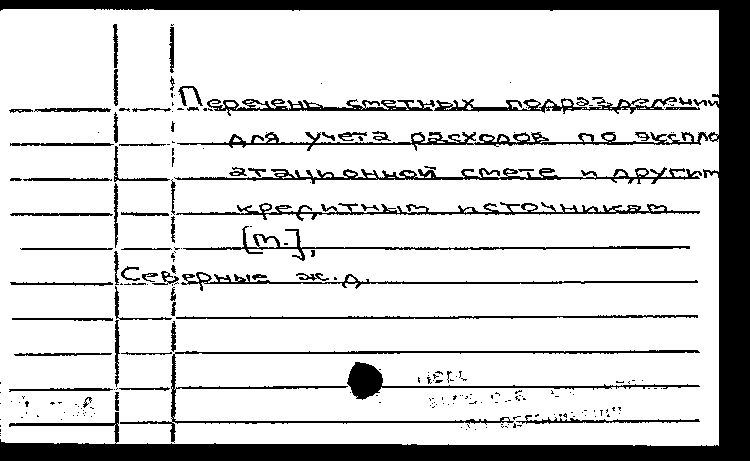 Перечень сметных подразделений
для учета расходов по экспло
атационной смете и другим
кредитным источникам
[м.],
Северные ж.д.